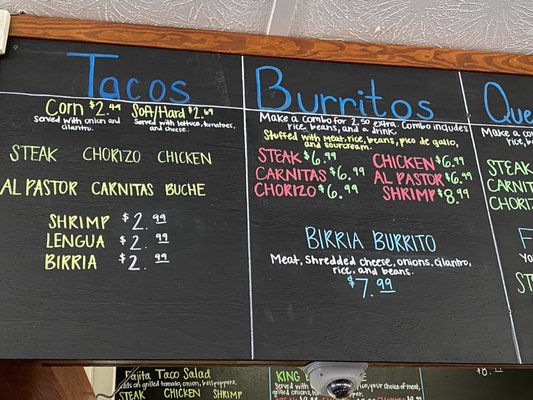 Tacos
Corn $2.49 Soft/Hard $2.69
served with onion and cilantro.
Served with lettuce, tomatoes, and cheese.
STEAK CHORIZO CHICKEN
AL PASTOR CARNITAS BUCHE
SHRIMP $2.99
LENGUA $2.99
BIRRIA $2.99
Burritos
Make a combo for 2.50 extra. Combo includes
rice, beans, and a drink.
Stuffed with meat, rice, beans, pico de gallo,
and sourcream.
STEAK $6.99 CHICKEN $6.99
CARNITAS $6.99 AL PASTOR $6.99
CHORIZO $6.99 SHRIMP $8.99
BIRRIA BURRITO
Meat, Shredded cheese, onions, cilantro,
rice, and beans.
$7.99
Que
Make a co
rice, bea
STEAK
CARNIT
CHORIZ
Fajita Taco Salad
grilled tomato, onion, bellpeppers,
STEAK CHICKEN SHRIMP
KING
Served
rice, your choice of meat,